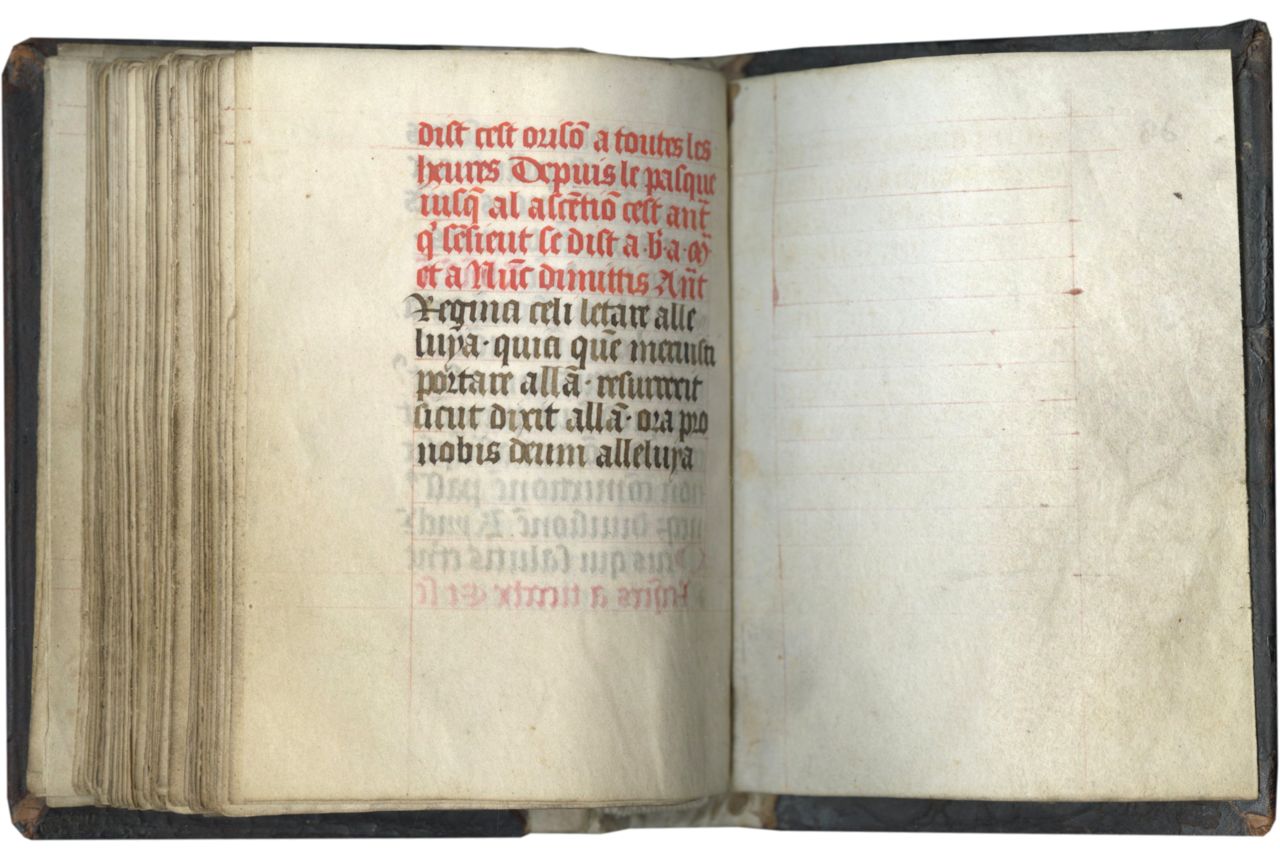 dist cest oriso̅ a toutes les
heures Depuis le pasque
iusq̅ al asce̅tio̅ cest ant̅
se dist a
et a Nu̅c dimittis An̅t
Regina celi letare alle
luya · quia que̅ meruisti
portare alla̅ · resurrexit
sicut dixit alla̅ · ora pro
nobis deum alleluya